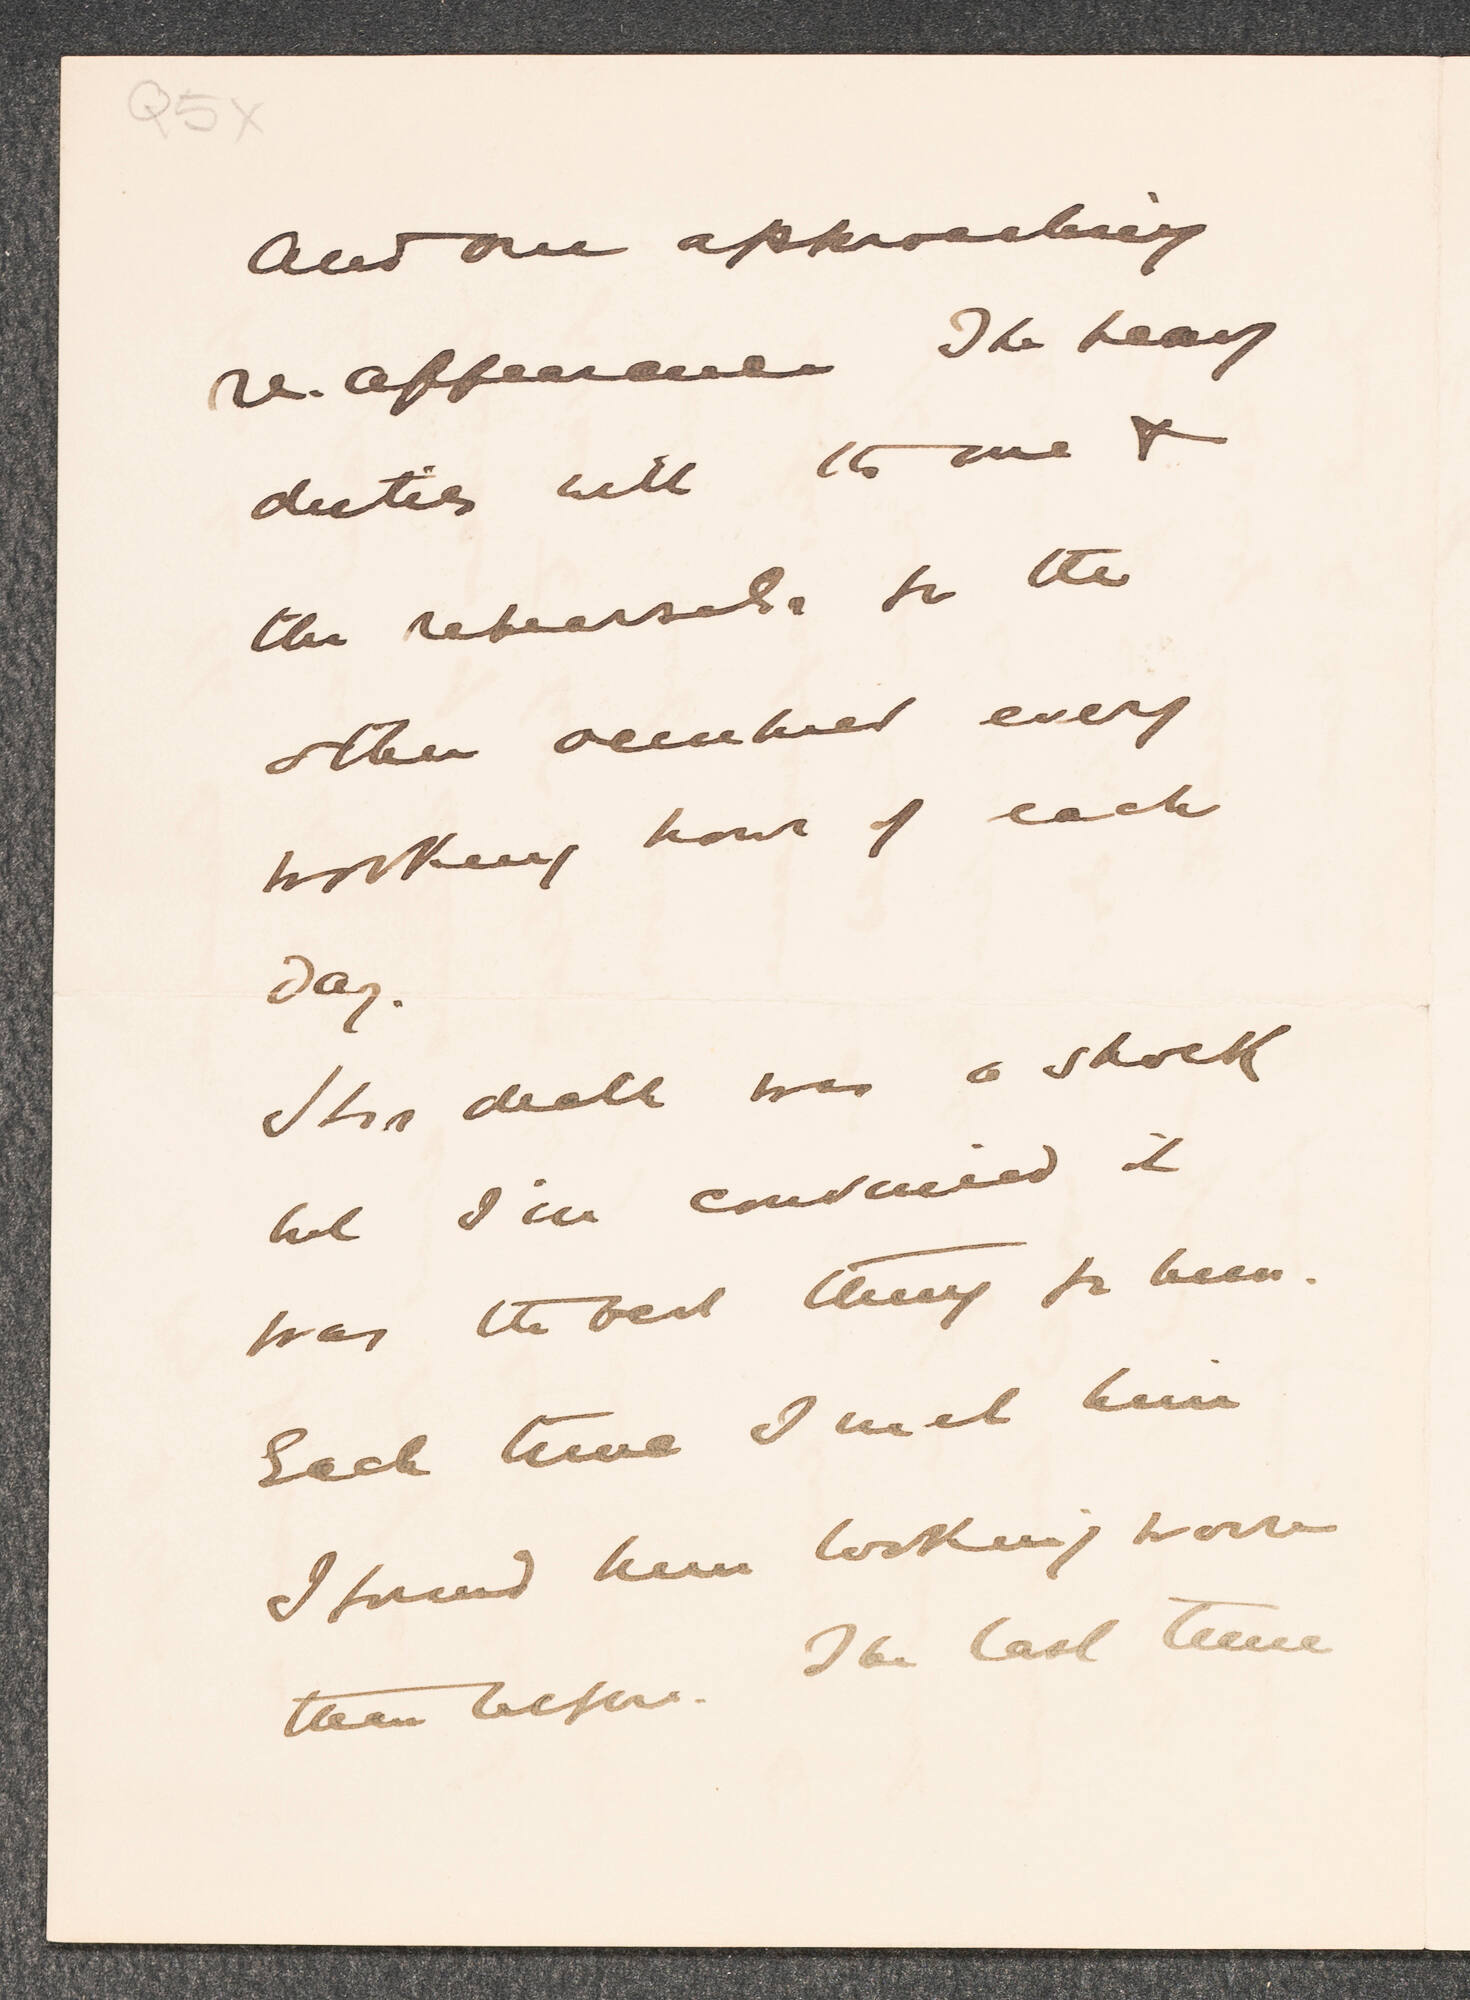 Q5X
And one approaching
re-appearance The heavy
duties with the one &
the rehearsals for the
other occupied every
working hour of each
day.
His death was a shock
but I'm convinced it
was the best thing for him.
Each time I met him
I found him looking worse
than before. The last time